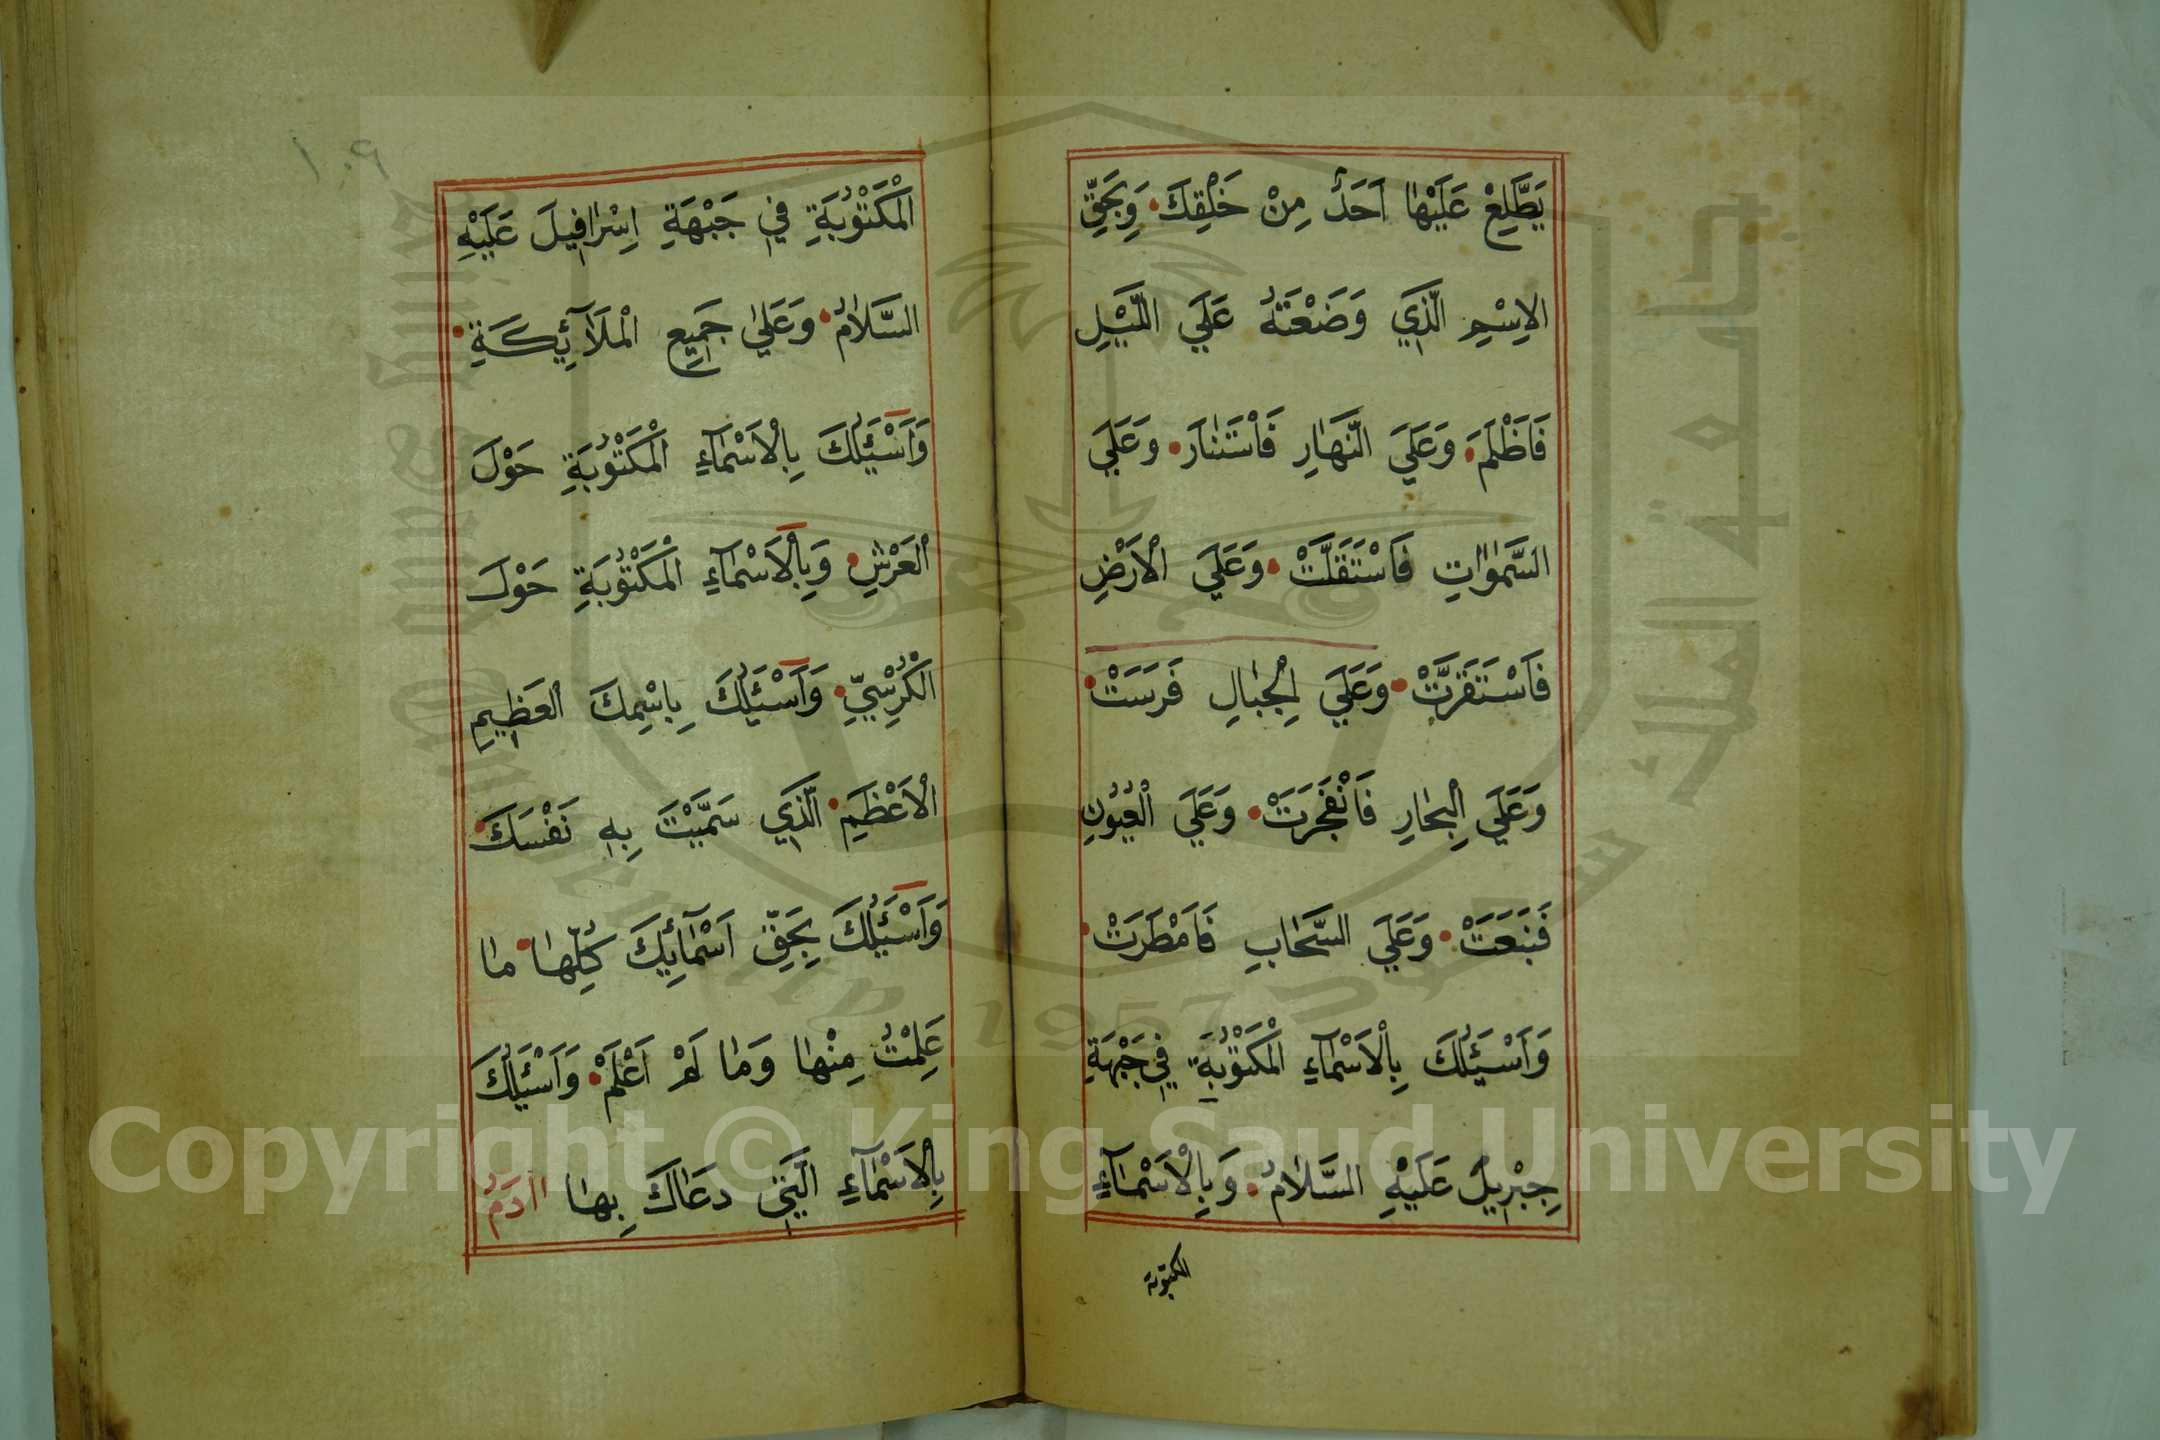 يَطَّلِعْ عَلَيْهَا اَحَدٌ مِنْ خَلْقِكَ وَبِحَقِّ
الاِسْمِ الَّذِي وَضَعْتَهُ عَلَي اللَّيْلِ
فَاَظْلَمَ وَعَلَي النَّهَارِ فَاسْتَنَارَ وَعَلَي
السَّمٰوَاتِ فَاسْتَقَلَّتْ وَعَلَي الْاَرْضِ
فَاسْتَقَرَّتْ وَعَلَي الْجِبَالِ فَرَسَتْ
وَعَلَي الْبِحَارِ فَانْفَجَرَتْ وَعَلَي الْعُيُونِ
فَنَبَعَتْ وَعَلَي السَّحَابِ فَاَمْطَرَتْ
وَاَسْئَلُكَ بِالْاَسْمَآءِ الْمَكْتُوْبَةِ فِي جَبْهَةِ
جِبْرِيلَ عَلَيْهِ السَّلَامُ وَبِالْاَسْمَآءِ
المكتوبة
١٠٩
الْمَكْتُوْبَةِ فِي جَبْهَةِ اِسْرَافِيلَ عَلَيْهِ
السَّلَامُ وَعَلٰي جَمِيعِ الْمَلَآئِكَةِ
وَاَسْئَلُكَ بِالْاَسْمَآءِ الْمَكْتُوْبَةِ حَوْلَ
الْعَرْشِ وَبِالْاَسْمَآءِ الْمَكْتُوْبَةِ حَوْلَ
الْكُرْسِيِّ وَاَسْئَلُكَ بِاسْمِكَ الْعَظِيمِ
الْاَعْظَمِ الَّذِي سَمَّيْتَ بِهِ نَفْسَكَ
وَاَسْئَلُكَ بِحَقِّ اَسْمَآئِكَ كُلِّهَا مَا
عَلِمْتُ مِنْهَا وَمَا لَمْ اَعْلَمْ وَاَسْئَلُكَ
بِالْاَسْمَآءِ الَّتِي دَعَاكَ بِهَا اٰدَمُ
Copyright © King Saud University
جامعة الملك سعود
King Saud University 1957